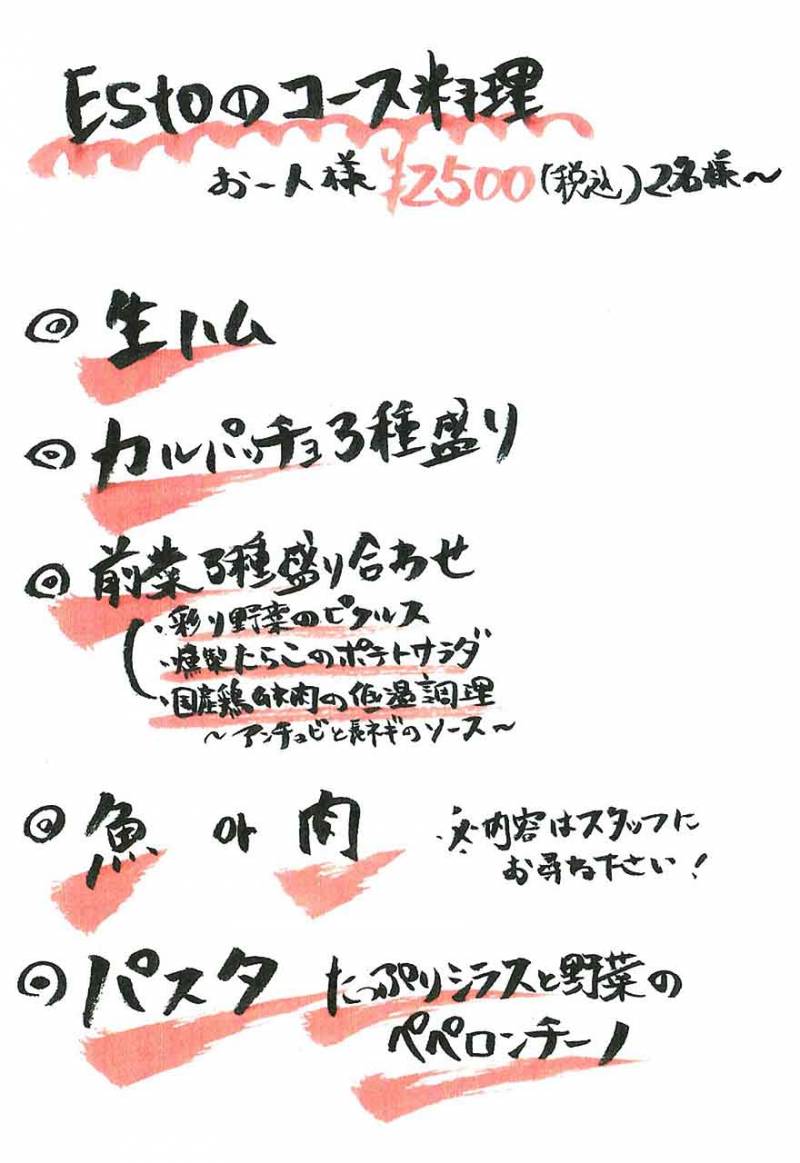 Estoのコース料理
お一人様 ¥2500(税込)2名様〜
◎ 生ハム
◎ カルパッチョ3種盛り
◎ 前菜3種盛り合わせ
・彩り野菜のピクルス
・燻製たらこのポテトサラダ
・国産鶏ムネ肉の低温調理
〜アンチョビと長ネギのソース〜
◎ 魚 or 肉 ※内容はスタッフに
お尋ね下さい!
◎ パスタ たっぷりシラスと野菜の
ペペロンチーノ